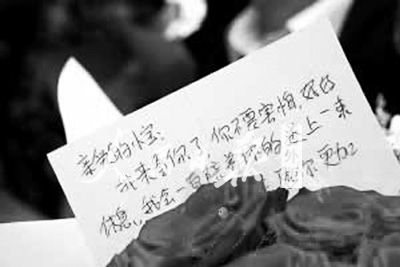 亲爱的小宝
我来看你了,你不要害怕,好好
休息,我会一直陪着你的 送上一束
愿你更加